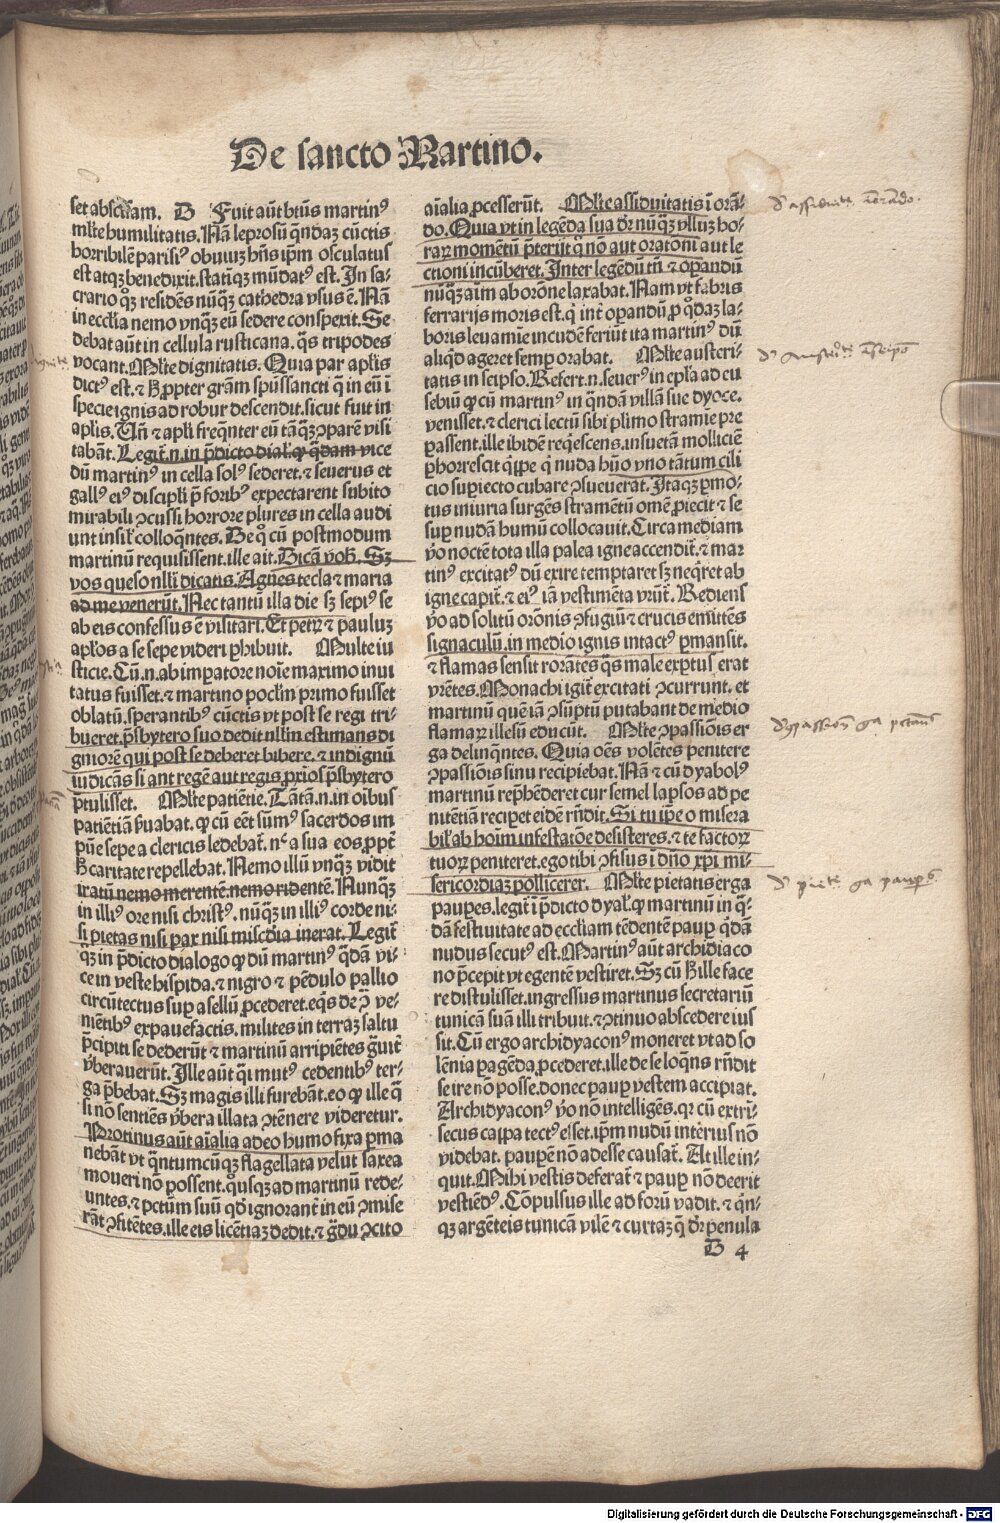 De sancto Martino.
set abscīsam. D Fuit aūt btūs martinꝰ
mlte humilitatis. Nā leprosū qndaꝫ cūctis
horribilē parisiꝰ obuiuꝫ hn̄s ip̄m osculatus
est atqꝫ benedixit. statiꝫqꝫ mūdatꝰ est. In sa⸗
crario qꝫ residēs nūqꝫ cathedra vsus ē. Nā
in ecclīa nemo vnqꝫ eū sedere conspexit. Se
debat aūt in cellula rusticana. qs tripodes
vocant. Mlte dignitatis. Quia par apl̄is
dictꝰ est. ⁊ ꝓpter grām spūssancti q̄ in eū ī
specie ignis ad robur descendit. sicut fuit in
apl̄is. Un̄ ⁊ apl̄i freqnter eū tāqꝫ ꝯparē visi
tabāt. Legit̄.n. in p̄dicto dial. ꝙ qdam vice
dū martinꝰ in cella solꝰ sederet. ⁊ seuerus et
gallꝰ eiꝰ discipl̄i p̄ foribꝰ expectarent subito
mirabili ꝯcussi horrore plures in cella audi
unt insil̄ colloqntes. De qͦ cū postmodum
martinū requisissent. ille ait. Dicā vob̄. Sꝫ
vos queso nlli dicatis. Agnes tecla ⁊ maria
ad me venerūt. Nec tantū illa die sꝫ sepiꝰ se
ab eis confessus ē visitari. Et petrꝫ ⁊ pauluꝫ
apl̄os a se sepe videri ꝑhibuit. Multe iu
sticie. Cū.n. ab imperatore noīe maximo inui
tatus fuisset. ⁊ martino pocl̄m primo fuisset
oblatū. sperantibꝰ cūctis vt post se regi tri⸗
bueret. p̄sbytero suo dedit nll̄m estimans di
gniorē qui post se deberet bibere. ⁊ indignū
iudicās si ant regē aut regis ꝓxios p̄sbytero
p̄tulisset. Mlte patiētie. Tātā.n. in oībus
patiētiā ẜuabat. ꝙ cū eēt sūmꝰ sacerdos im
pūe sepe a clericis ledebat̄. nᶜ a sua eos ꝓpt̄
ꝫ caritate repellebat. Nemo illū vnqꝫ vidit
iratū nemo merentē. nemo ridentē. Nunqꝫ
in illiꝰ ore nisi christꝰ. nūqꝫ in illiꝰ corde ni⸗
si pietas nisi pax nisi misc̄dia inerat. Legit̄
qꝫ in p̄dicto dialogo ꝙ dū martinꝰ qdā vi⸗
ce in veste hispida. ⁊ nigro ⁊ pēdulo pallio
circūtectus suꝑ asellū ꝓcederet. eqs de ꝯ ve⸗
niētibꝰ expauefactis. milites in terraꝫ saltu
p̄cipiti se dederūt ⁊ martinū arripiētes ḡuit̄
ṽberauerūt. Ille aūt qi mutꝰ cedentibꝰ ter⸗
ga p̄bebat. Sꝫ magis illi furebāt. eo ꝙ ille q̄
si nō sentiēs ṽbera illata ꝯtēnere videretur.
Protinus aūt aīalia adeo humo fixa ꝑma
nebāt vt qntumcūqꝫ flagellata velut saxea
moueri nō possent. quͦsqꝫ ad martinū rede⸗
untes. ⁊ pctm̄ suū qd̄ ignorant̄ in eū ꝯmise
rāt ꝯfitētes. ille eis licētiaꝫ dedit. ⁊ ḡdu ꝯcito
aīalia ꝓcesserūt. Mlte assiduitatis ī orā⸗
do. Quia vt in legēda sua dr̄ nūqꝫ vlluꝫ ho⸗
raꝝ momētū p̄terijt q nō aut oratoni aut le
ctioni incūberet. Inter legēdū tn̄ ⁊ oꝑandū
nūqꝫ aīm ab orōne laxabat. Nam vt fabris
ferrarijs moris est. q int oꝑandū ꝓ qdaꝫ la⸗
boris leuamie incudē feriūt ita martinꝰ dū
aliqd ageret semp orabat. Mlte austeri⸗
tatis in seipso. Refert.n. seuerꝰ in epl̄a ad eu
sebiū ꝙ cū martinꝰ in qndā villā sue dyoce.
venisset. ⁊ clerici lectū sibi plimo stramie pre
parassent. ille ibidē reqescens. insuetā molliciē
ꝑhorrescit qippe q nuda humo vno tātum cili
cio suꝑiecto cubare ꝯsueuerat. Itaqꝫ ꝑmo⸗
tus iniuria surgēs stramētū omē ꝓiecit ⁊ se
suꝑ nudā humū collocauit. Circa mediam
ṽo noctē tota illa palea igne accendit̄. ⁊ mar
tinꝰ excitatꝰ dū exire temptaret sꝫ neqret ab
igne capit̄. ⁊ eiꝰ iā vestimēta vrūt̄. Rediens
ṽo ad solitū orōnis ꝯfugiū ⁊ crucis emittēs
signaculū. in medio ignis intactꝰ ꝑmansit.
⁊ flamas sensit rorātes qs male exptus erat
vrētes. Monachi igit̄ excitati ꝯcurrunt. et
martinū quē iā ꝯsūptū putabant de medio
flamaꝝ illesū educūt. Mlte ꝯpassiōis er
ga delinqntes. Quia oēs volētes penitere
ꝯpassiōis sinu recipiebat. Nā ⁊ cū dyabolꝰ
martinū rep̄hēderet cur semel lapsos ad pe
nitētiā recipet eidē rn̄dit. Si tu ip̄e o misera
bil̄ ab hoīm infestatōe desisteres. ⁊ te factoꝝ
tuoꝝ peniteret. ego tibi ꝯfisus ī dn̄o xp̄i mi⸗
sericordiaꝫ pollicerer. Mlte pietatis erga
pauꝑes. legit̄ ī p̄dicto dyal. ꝙ martinū in q⸗
dā festiuitate ad eccliam tēdentē pauꝑ qdā
nudus secutꝰ est. Martinꝰ aūt archidiaco
no p̄cepit vt egentē vestiret. Sꝫ cū ille face
re distulisset. ingressus martinus secretariū
tunicā suā illi tribuit. ⁊ ꝯtinuo abscedere ius
sit. Cū ergo archidyaconꝰ moneret vt ad so
lēnia ꝑagēda ꝓcederet. ille de se loqns rn̄dit
se ire nō posse. donec pauꝑ vestem accipiat.
Archidyaconꝰ ṽo nō intelligēs. qꝛ cū extri⸗
secus cappa tectꝰ esset. ip̄m nudū interius nō
videbat. pauperē nō adesse causat̄. At ille in⸗
quit. Mihi vestis deferat̄ ⁊ pauꝑ nō deerit
vestiēdꝰ. Cōpulsus ille ad forū vadit. ⁊ qn⸗
qꝫ argēteis tunicā vilē ⁊ curtaꝫ q dr̄ penula
B 4
Digitalisierung gefördert durch die Deutsche Forschungsgemeinschaft - DFG